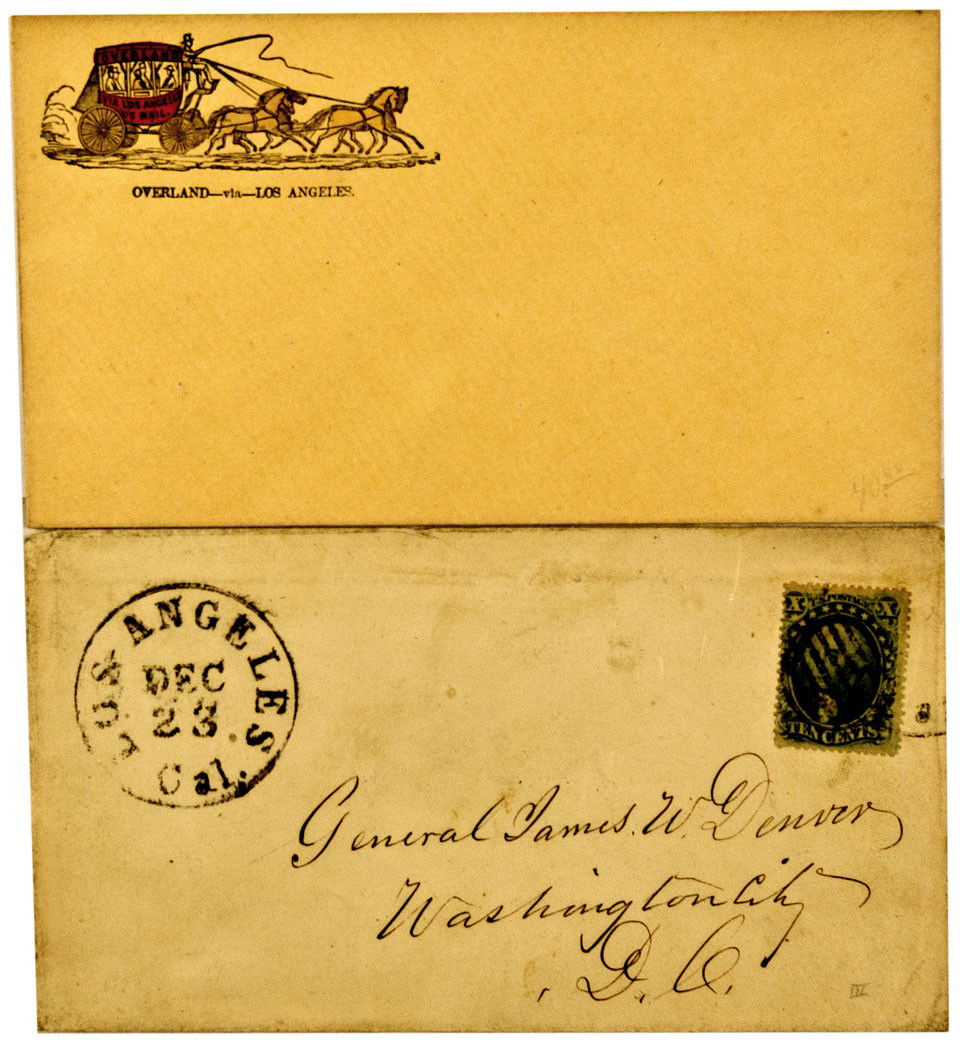 OVERLAND
VIA LOS ANGELES
US MAIL.
OVERLAND—via—LOS ANGELES.
LOS ANGELES
DEC
23
Cal.
X U.S. POSTAGE X
TEN CENTS
General James. W. Denver
Washington City
D. C.